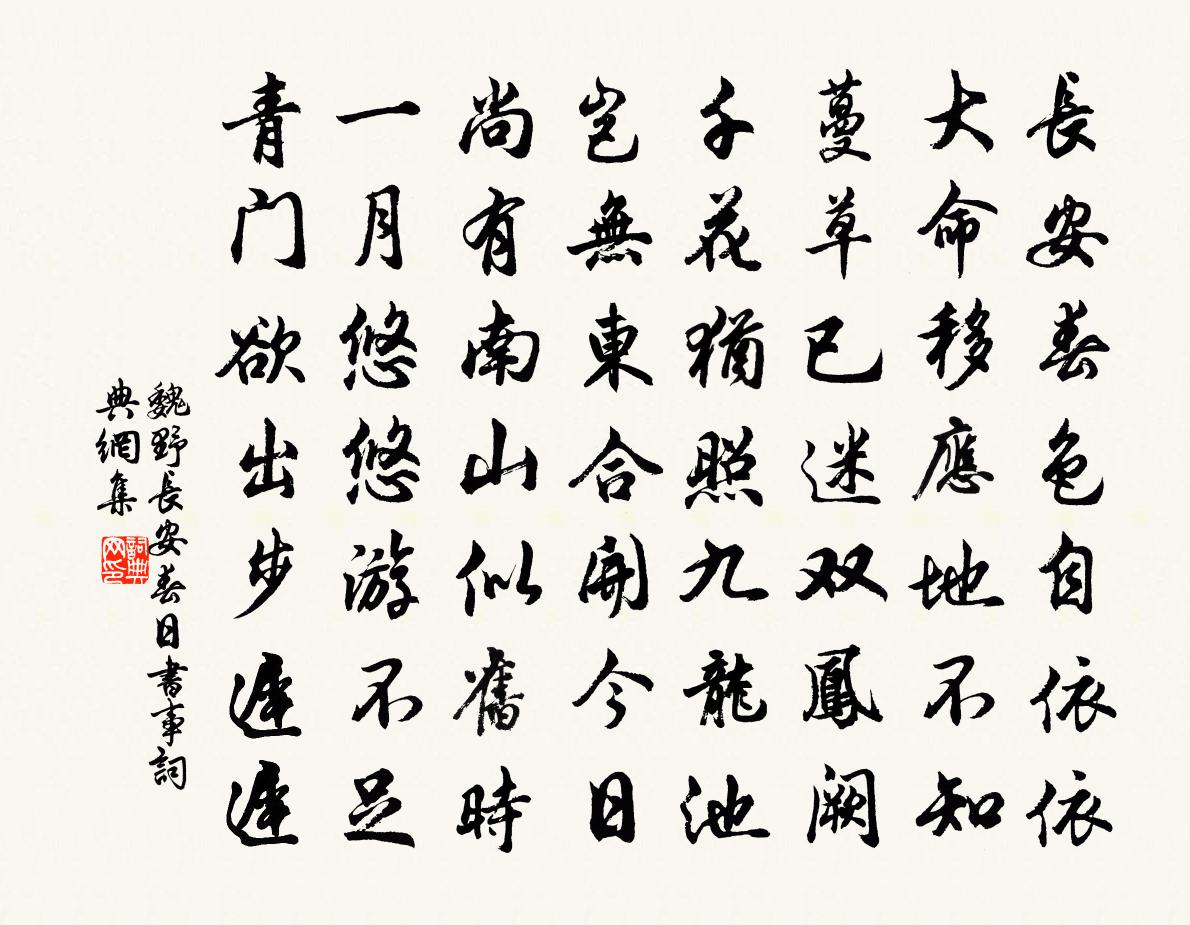 長安春色自依依
大命移應地不知
蔓草已迷双鳳闕
千花猶照九龍池
豈無東合開今日
尚有南山似舊時
一月悠悠游不足
青门欲出步遲遲
魏野長安春日書事詞
典網集
詞典
网印